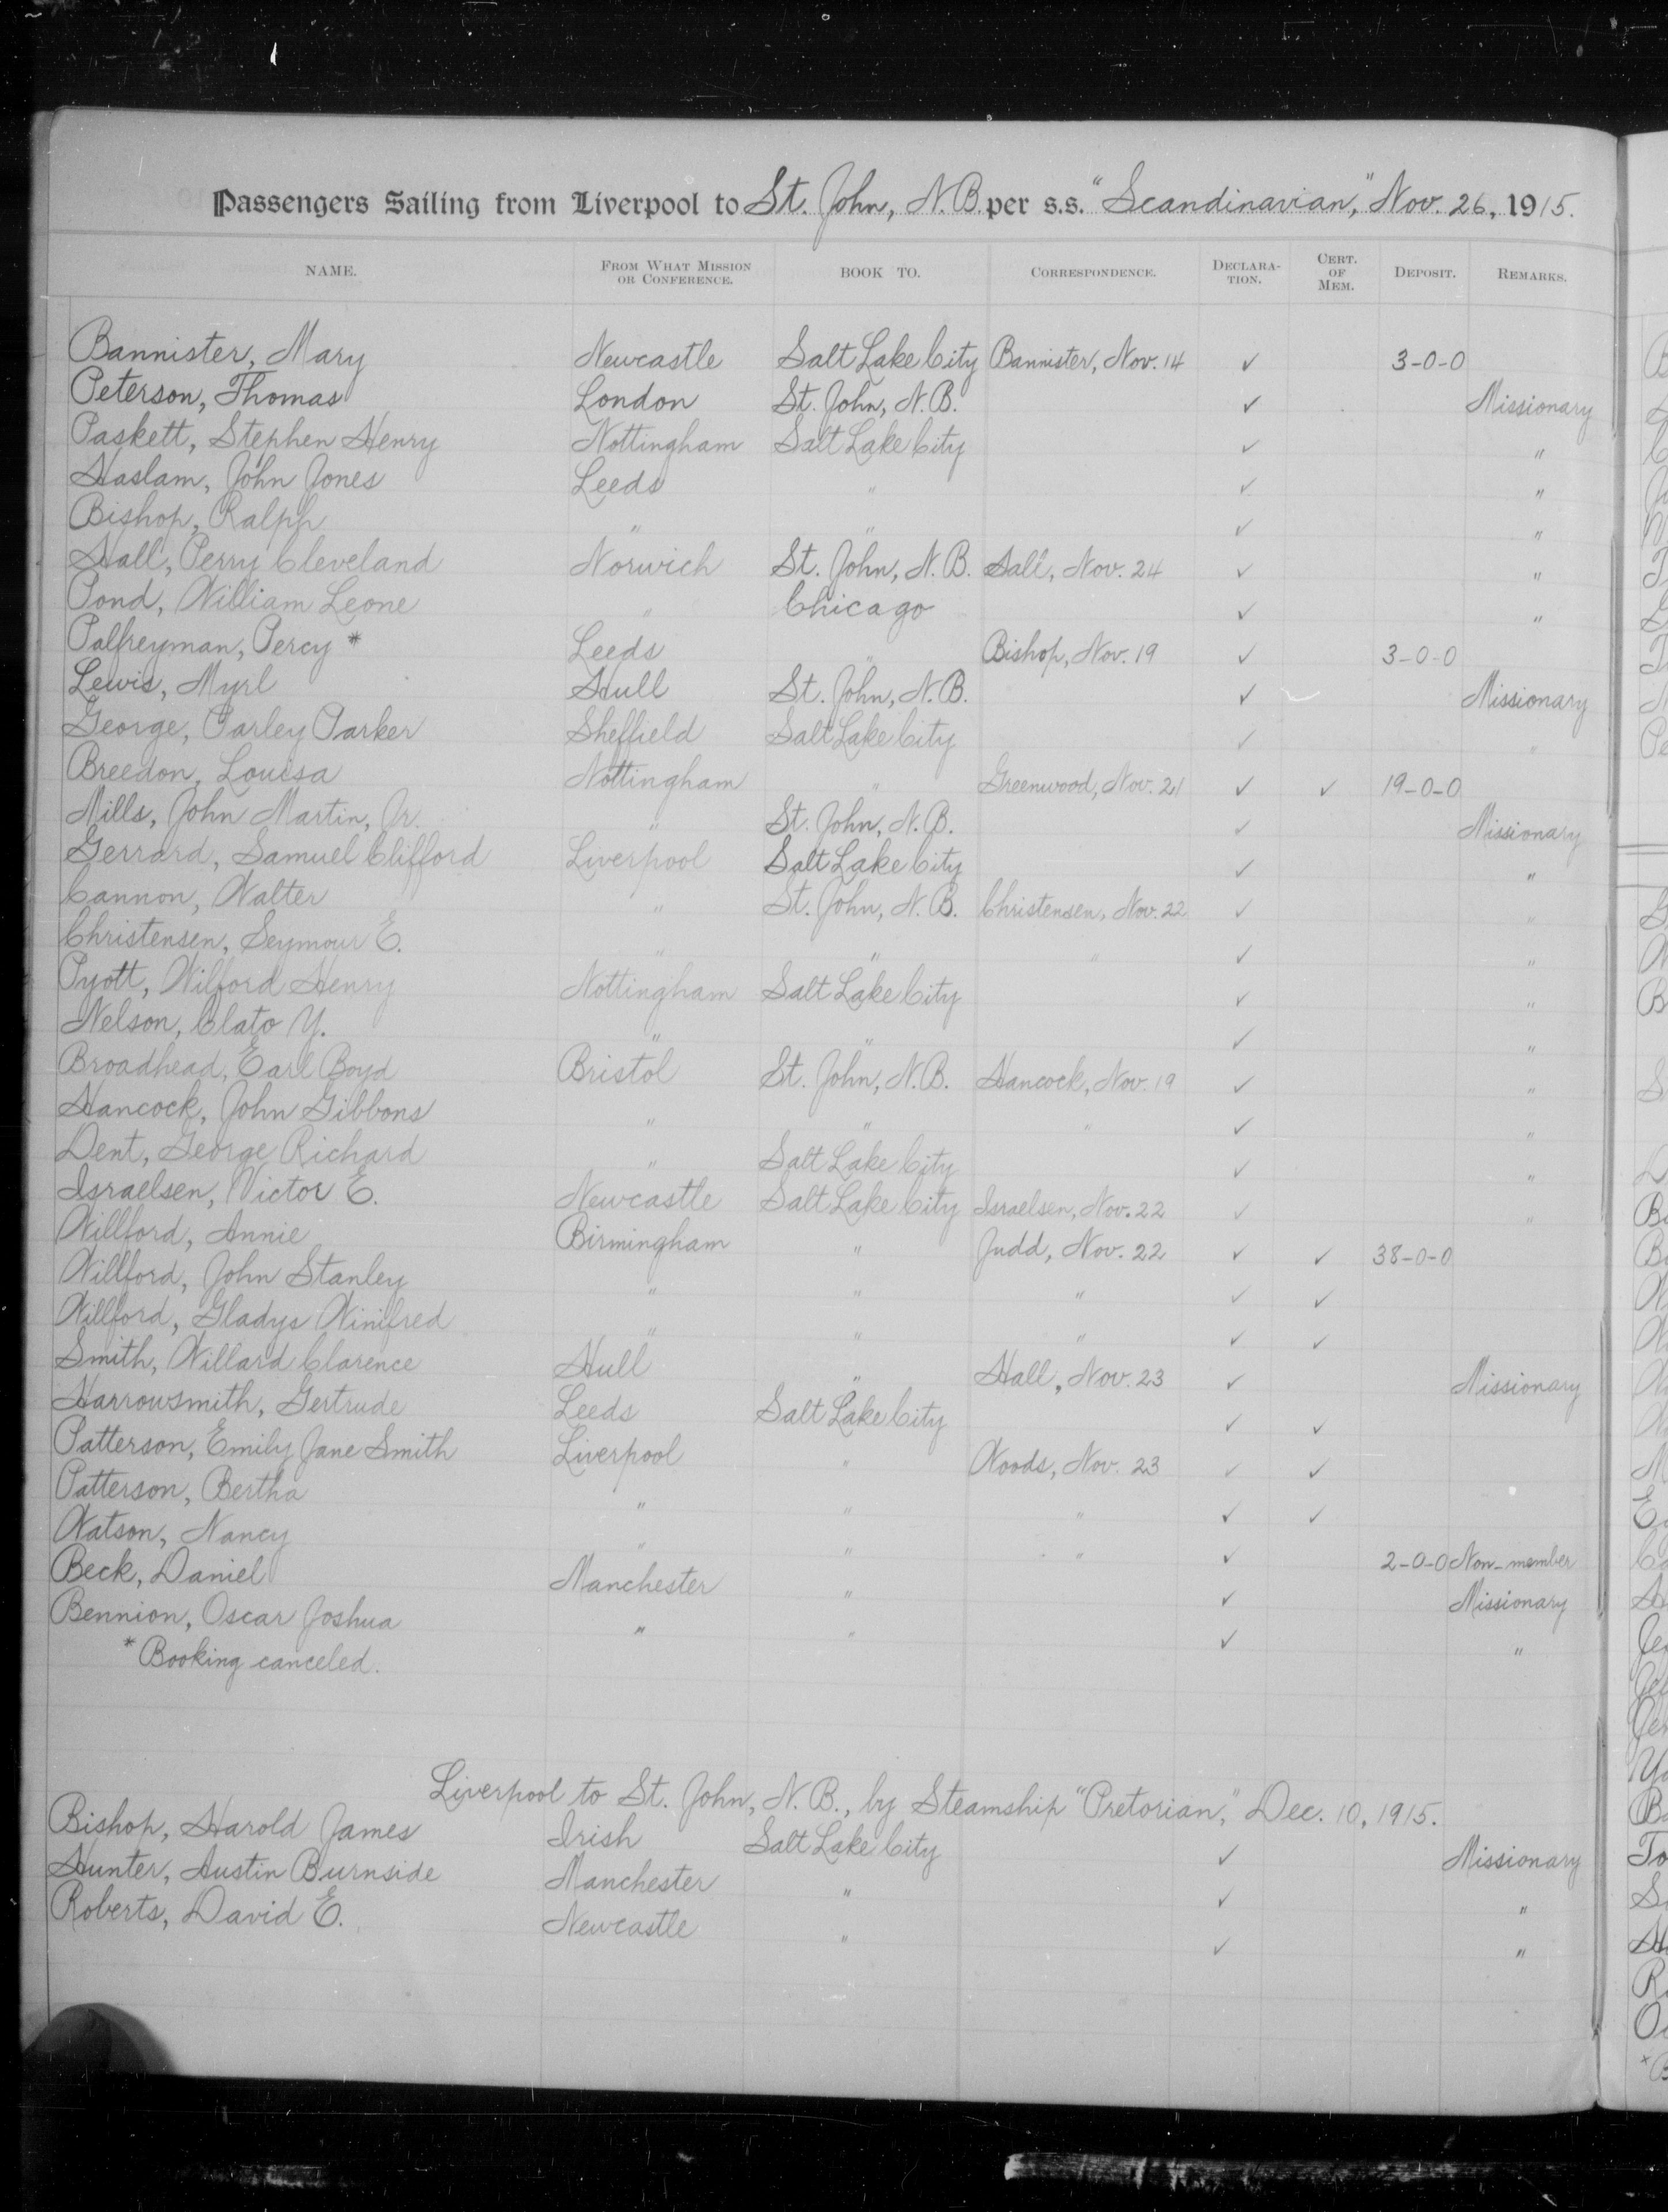 Passengers Sailing from Liverpool to St. John, N.B. per s.s. "Scandinavian," Nov. 26, 1915.
NAME. FROM WHAT MISSION OR CONFERENCE. BOOK TO. CORRESPONDENCE. DECLARA-TION. CERT. OF MEM. DEPOSIT. REMARKS.
Bannister, Mary Newcastle Salt Lake City Bannister, Nov. 14 ✓ 3-0-0
Peterson, Thomas London St. John, N.B. ✓ Missionary
Paskett, Stephen Henry Nottingham Salt Lake City ✓ "
Haslam, John Jones Leeds " ✓ "
Bishop, Ralph " " ✓ "
Hall, Perry Cleveland Norwich St. John, N.B. Sall, Nov. 24 ✓ "
Pond, William Leone " Chicago ✓ "
Palfreyman, Percy * Leeds " Bishop, Nov. 19 ✓ 3-0-0
Lewis, Myrl Hull St. John, N.B. ✓ Missionary
George, Parley Parker Sheffield Salt Lake City ✓ "
Breedon, Louisa Nottingham " Greenwood, Nov. 21 ✓ ✓ 19-0-0
Mills, John Martin, Jr. " St. John, N.B. ✓ Missionary
Gerrard, Samuel Clifford Liverpool Salt Lake City ✓ "
Cannon, Walter " St. John, N.B. Christensen, Nov. 22 ✓ "
Christensen, Seymour E. " " " ✓ "
Pyott, Wilford Henry Nottingham Salt Lake City ✓ "
Nelson, Clato Y. " " ✓ "
Broadhead, Earl Boyd Bristol St. John, N.B. Hancock, Nov. 19 ✓ "
Hancock, John Gibbons " " " ✓ "
Dent, George Richard " Salt Lake City ✓ "
Israelsen, Victor E. Newcastle Salt Lake City Israelsen, Nov. 22 ✓ "
Willford, Annie Birmingham " Judd, Nov. 22 ✓ ✓ 38-0-0
Willford, John Stanley " " " ✓ ✓
Willford, Gladys Winifred " " " ✓ ✓
Smith, Willard Clarence Hull " Hall, Nov. 23 ✓ Missionary
Harrowsmith, Gertrude Leeds Salt Lake City ✓ ✓
Patterson, Emily Jane Smith Liverpool " Woods, Nov. 23 ✓ ✓
Patterson, Bertha " " " ✓ ✓
Watson, Nancy " " " ✓ 2-0-0 Non-member
Beck, Daniel Manchester " ✓ Missionary
Bennion, Oscar Joshua " " ✓ "
* Booking canceled.
Liverpool to St. John, N.B., by Steamship "Pretorian," Dec. 10, 1915.
Bishop, Harold James Irish Salt Lake City ✓ Missionary
Hunter, Austin Burnside Manchester " ✓ "
Roberts, David E. Newcastle " ✓ "